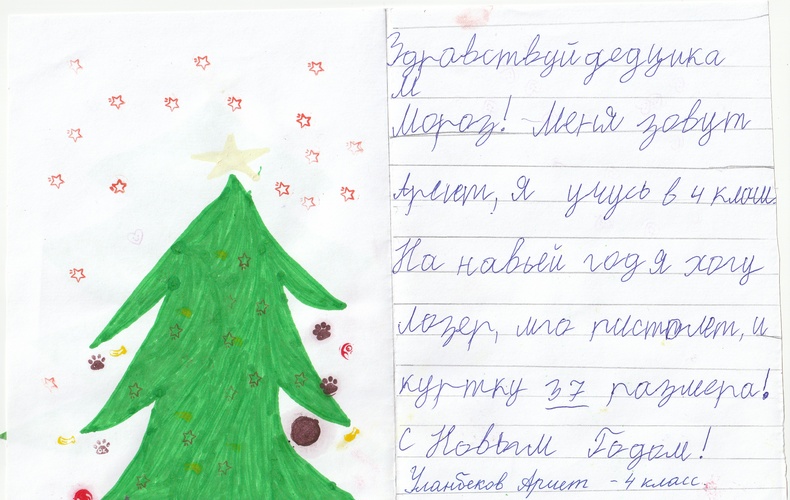 Здравствуй дедушка
М
Мороз! Меня зовут
Ариет, я учусь в 4 класи
На навый год я хочу
лозер, мго пистолет, и
куртку 37 размера!
С Новым Годом!
Уланбеков Ариет - 4 класс.